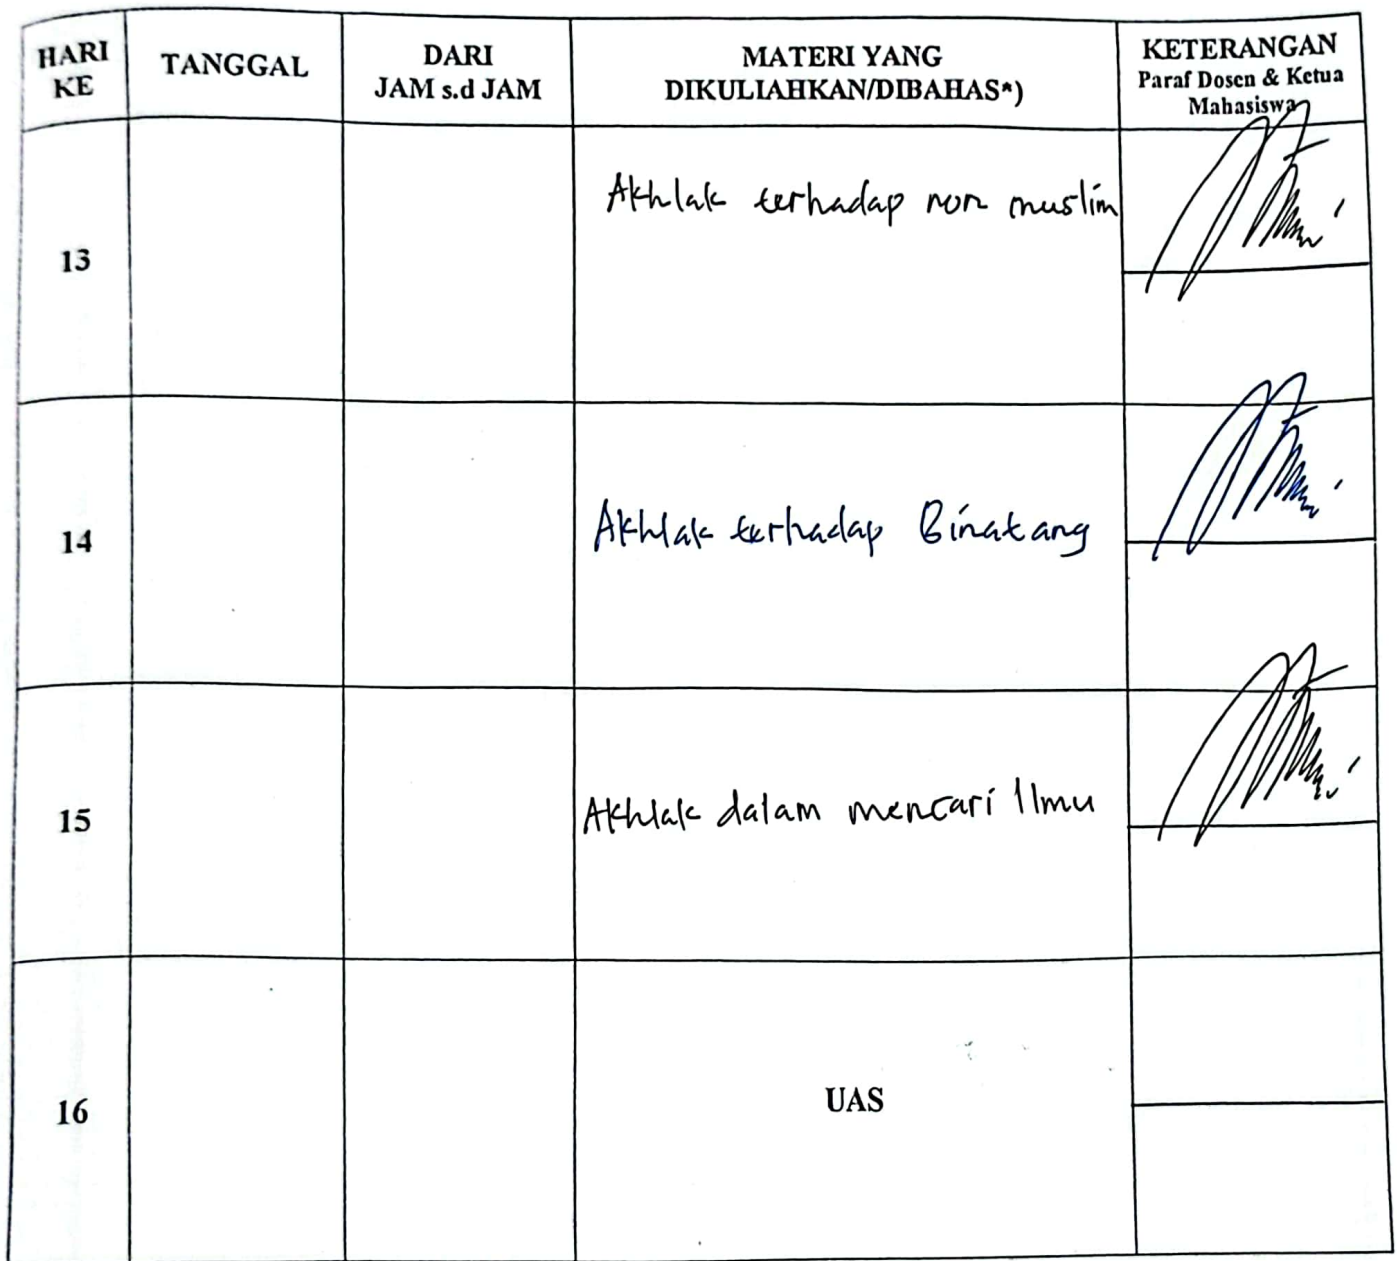 HARI
KE
TANGGAL
DARI
JAM s.d JAM
MATERI YANG
DIKULIAHKAN/DIBAHAS*)
KETERANGAN
Paraf Dosen & Ketua
Mahasiswa
13
Akhlak terhadap non muslim
14
Akhlak terhadap Binatang
15
Akhlak dalam mencari Ilmu
16
UAS